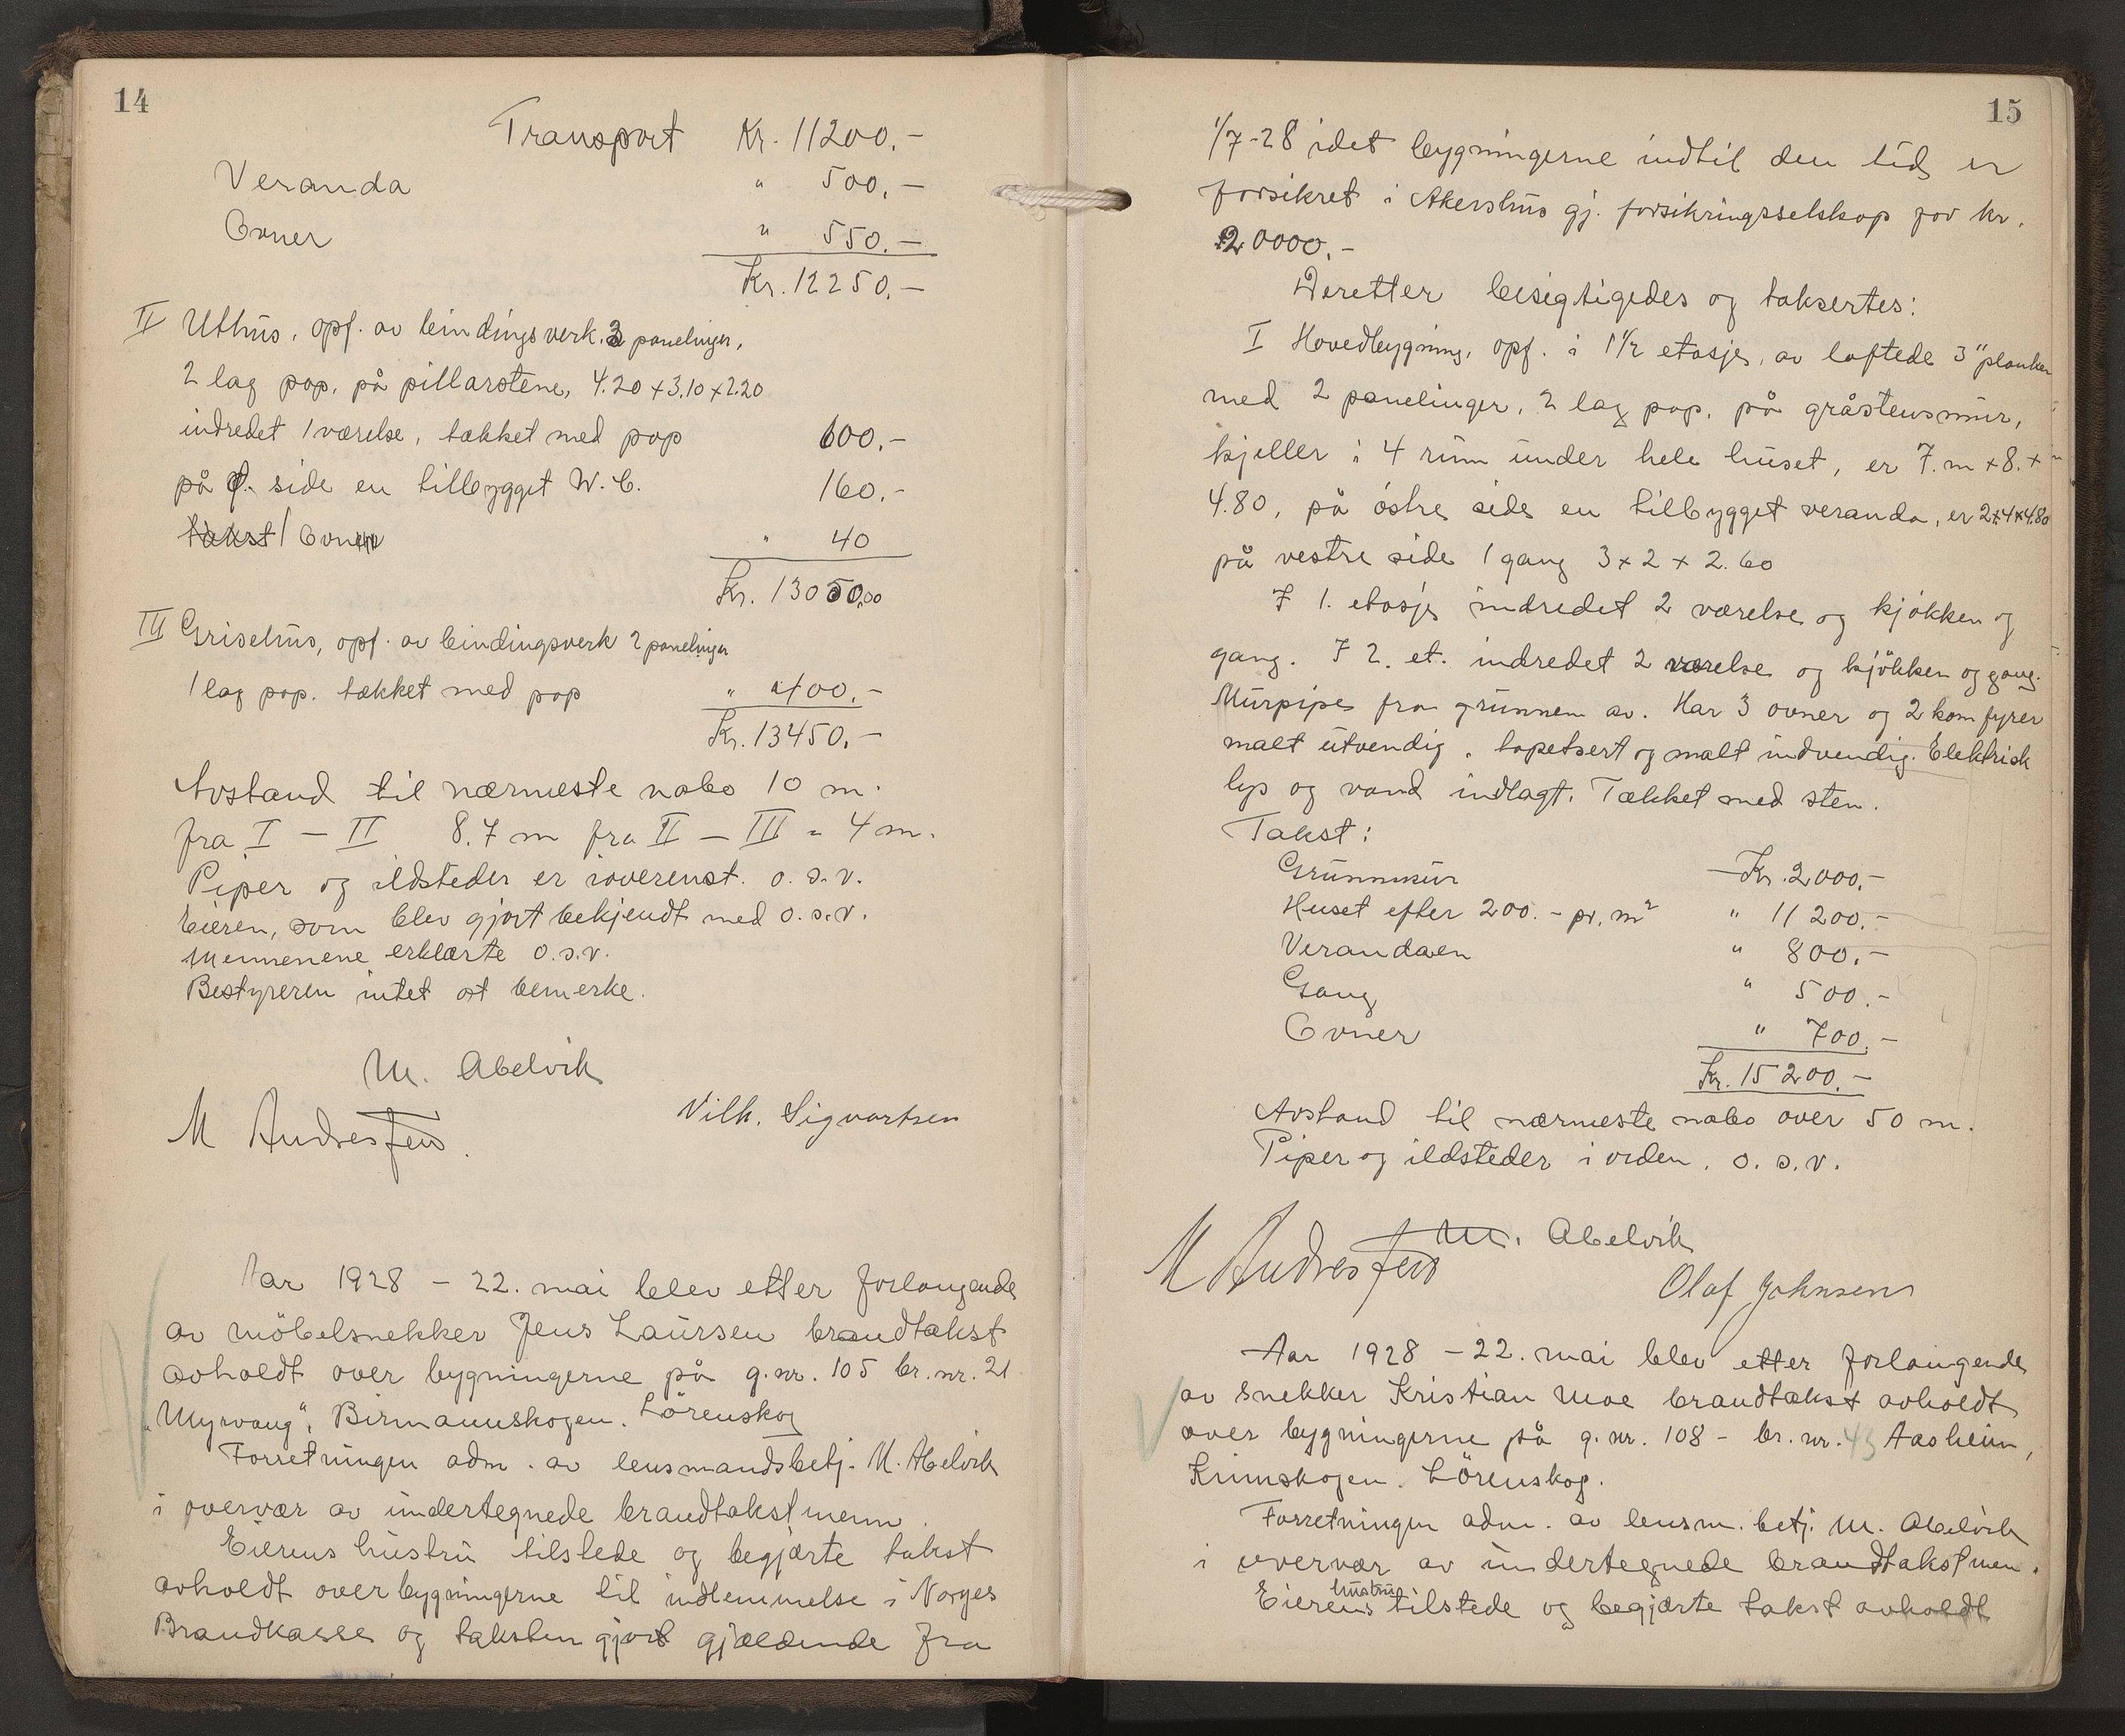 14
Transport Kr. 11200.-
Veranda " 500.-
Ovner " 550.-
Kr. 12250.-
II Uthus, opf. av bindingsverk, 2 panelinger,
2 lag pap, på pillarstene, 4.20 x 3.10 x 2.20
indredet 1 værelse, tækket med pap 600.-
på side en tilbygget W.C. 160.-
takst 1 Ovner " 40
Kr. 13050.00
III Grisehus, opf. av bindingsverk 2 panelinger
1 lag pap. tækket med pap " 400.-
Kr. 13450.-
Avstand til nærmeste nabo 10 m.
fra I - II 8.7 m fra II - III = 4 m.
Piper og ildsteder er i overenst. o.s.v.
Eieren, som blev gjort bekjendt med o.s.v.
Mennenene erklærte o.s.v.
Bestyreren intet at bemerke.
M. Abelvik
M Andresen
Vilh. Sigvartsen
Aar 1928 - 22. mai blev etter forlangende
av möbelsnekker Jens Laursen brandtakst
avholdt over bygningerne på g.nr. 105 br.nr. 21
"Myrvang", Birmannskogen. Lörenskog
Forretningen adm. av lensmandsbetj. M. Abelvik
i overvær av undertegnede brandtakstmenn.
Eierens hustru tilstede og begjærte takst
avholdt over bygningerne til indlemmelse i Norges
Brandkasse og taksten gjort gjældende fra
15
1/7-28 idet bygningerne indtil den tid er
forsikret i Akershus gj. forsikringsselskap for kr.
20000.-
Deretter besigtigedes og taksertes:
I Hovedbygning, opf. i 1 1/2 etasje, av laftede 3" planker
med 2 panelinger, 2 lag pap, på gråstensmur,
kjeller i 4 rum under hele huset, er 7. m x 8. x
4.80, på östre side en tilbygget veranda, er 2x4x4.80
på vestre side 1 gang 3 x 2 x 2.60
I 1. etasje indredet 2 værelse og kjökken og
gang. I 2. et. indredet 2 værelse og kjökken og gang.
Murpipe fra grunnen av. Har 3 ovner og 2 komfyrer
malt utvendig, tapetsert og malt indvendig. Elektrisk
lys og vand indlagt. Tækket med sten.
Takst:
Grunnmur Kr. 2000.-
Huset efter 200.- pr. m² " 11200.-
Verandaen " 800.-
Gang " 500.-
Ovner " 700.-
Kr. 15200.-
Avstand til nærmeste nabo over 50 m.
Piper og ildsteder i orden. o.s.v.
M. Abelvik
M Andresen
Olaf Johnsen
Aar 1928 - 22. mai blev etter forlangende
av snekker Kristian Moe brandtakst avholdt
over bygningerne på g.nr. 108 - br.nr. 43 Aasheim,
Krimskogen. Lörenskog.
Forretningen adm. av lensm. betj. M. Abelvik
i overvær av undertegnede brandtakstmen.
Eierens hustru tilstede og begjærte takst avholdt